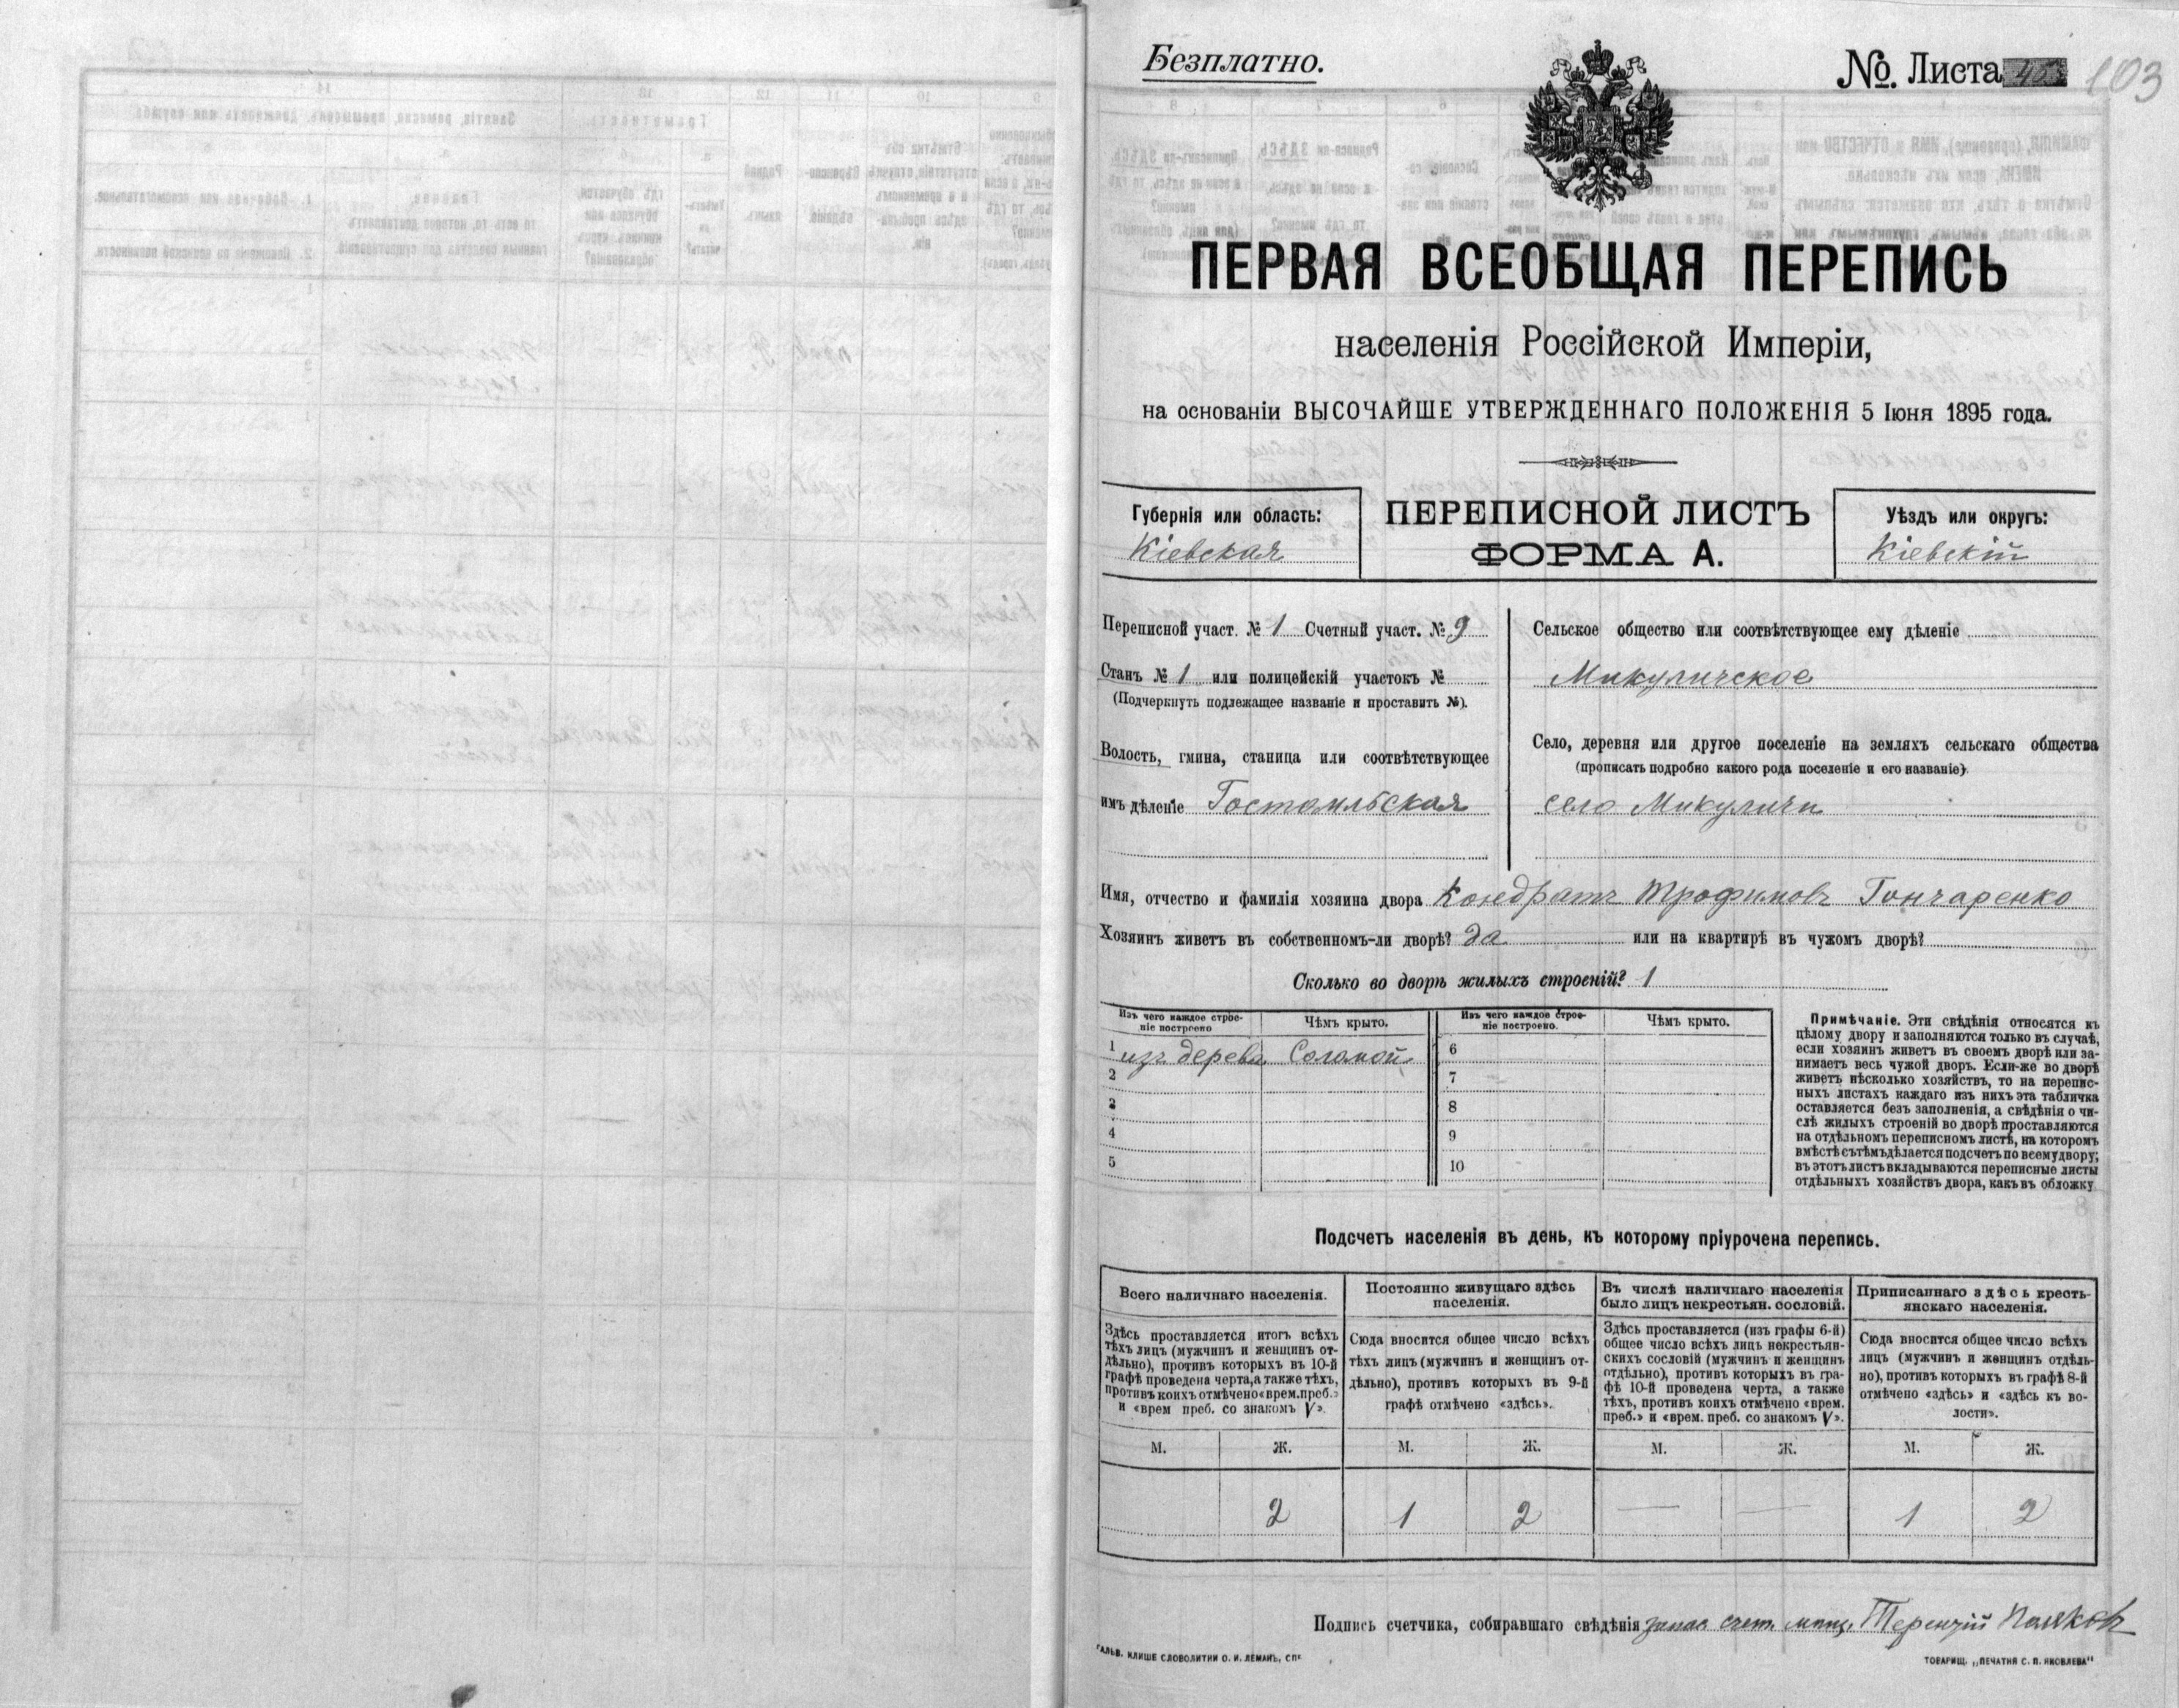 Безплатно.
№. Листа 103
ПЕРВАЯ ВСЕОБЩАЯ ПЕРЕПИСЬ
населенія Россійской Имперіи,
на основаніи ВЫСОЧАЙШЕ УТВЕРЖДЕННАГО ПОЛОЖЕНІЯ 5 Іюня 1895 года.
Губернія или область:
Кіевская
ПЕРЕПИСНОЙ ЛИСТЪ
ФОРМА А.
Уѣздъ или округъ:
Кіевскій
Переписной участ. № 1 Счетный участ. № 9
Станъ № 1 или полицейскій участокъ №
(Подчеркнуть подлежащее названіе и проставить №).
Волость, гмина, станица или соотвѣтствующее
имъ дѣленіе Гостомльская
Сельское общество или соотвѣтствующее ему дѣленіе
Микуличское
Село, деревня или другое поселеніе на земляхъ сельскаго общества
(прописать подробно какого рода поселеніе и его названіе)
село Микуличи
Имя, отчество и фамилія хозяина двора Кондратъ Трофимовъ Гончаренко
Хозяинъ живетъ въ собственномъ-ли дворѣ? да или на квартирѣ въ чужомъ дворѣ?
Сколько во дворѣ жилыхъ строеній? 1
Изъ чего каждое строе-
ніе построено
Чѣмъ крыто.
Изъ чего каждое строе-
ніе построено.
Чѣмъ крыто.
1 изъ дерева Соломой
2
3
4
5
6
7
8
9
10
Примѣчаніе. Эти свѣдѣнія относятся къ
цѣлому двору и заполняются только въ случаѣ,
если хозяинъ живетъ въ своемъ дворѣ или за-
нимаетъ весь чужой дворъ. Если-же во дворѣ
живетъ нѣсколько хозяйствъ, то на перепис-
ныхъ листахъ каждаго изъ нихъ эта табличка
оставляется безъ заполненія, а свѣдѣнія о чи-
слѣ жилыхъ строеній во дворѣ проставляются
на отдѣльномъ переписномъ листѣ, на которомъ
вмѣстѣ съ тѣмъ дѣлается подсчетъ по всему двору;
въ этотъ листъ вкладываются переписные листы
отдѣльныхъ хозяйствъ двора, какъ въ обложку
Подсчетъ населенія въ день, къ которому пріурочена перепись.
Всего наличнаго населенія.
Здѣсь проставляется итогъ всѣхъ
тѣхъ лицъ (мужчинъ и женщинъ от-
дѣльно), противъ которыхъ въ 10-й
графѣ проведена черта, а также тѣхъ,
противъ коихъ отмѣчено «врем. преб.»
и «врем преб. со знакомъ V».
Постоянно живущаго здѣсь
населенія.
Сюда вносится общее число всѣхъ
тѣхъ лицъ (мужчинъ и женщинъ от-
дѣльно), противъ которыхъ въ 9-й
графѣ отмѣчено «здѣсь».
Въ числѣ наличнаго населенія
было лицъ некрестьян. сословій.
Здѣсь проставляется (изъ графы 6-й)
общее число всѣхъ лицъ некрестьян-
скихъ сословій (мужчинъ и женщинъ
отдѣльно), противъ которыхъ въ гра-
фѣ 10-й проведена черта, а также
тѣхъ, противъ коихъ отмѣчено «врем.
преб.» и «врем. преб. со знакомъ V».
Приписаннаго здѣсь кресть-
янскаго населенія.
Сюда вносится общее число всѣхъ
лицъ (мужчинъ и женщинъ отдѣль-
но), противъ которыхъ въ графѣ 8-й
отмѣчено «здѣсь» и «здѣсь къ во-
лости».
М. Ж. М. Ж. М. Ж. М. Ж.
2 1 2 — — 1 2
Подпись счетчика, собиравшаго свѣдѣнія запас счет. Терентій Поляковъ
ГАЛЬВ. КЛИШЕ СЛОВОЛИТНИ О. И. ЛЕМАНЪ, СПБ
ТОВАРИЩ. „ПЕЧАТНЯ С. П. ЯКОВЛЕВА"